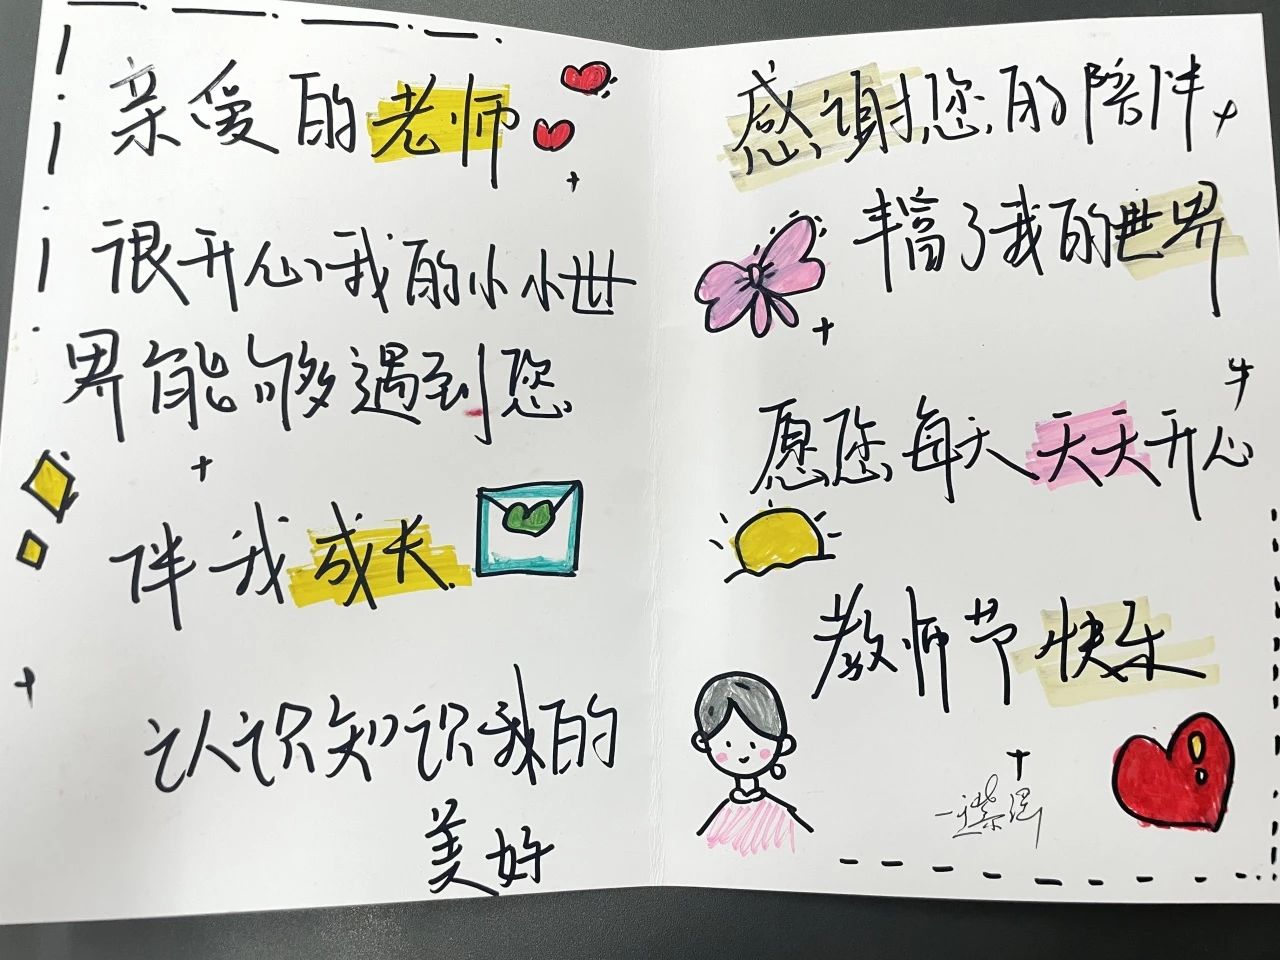 亲爱的老师
很开心我的小小世
界能够遇到您
伴我成长
认识知识我的
美好
感谢您的陪伴
丰富了我的世界
愿您每天天天开心
教师节快乐